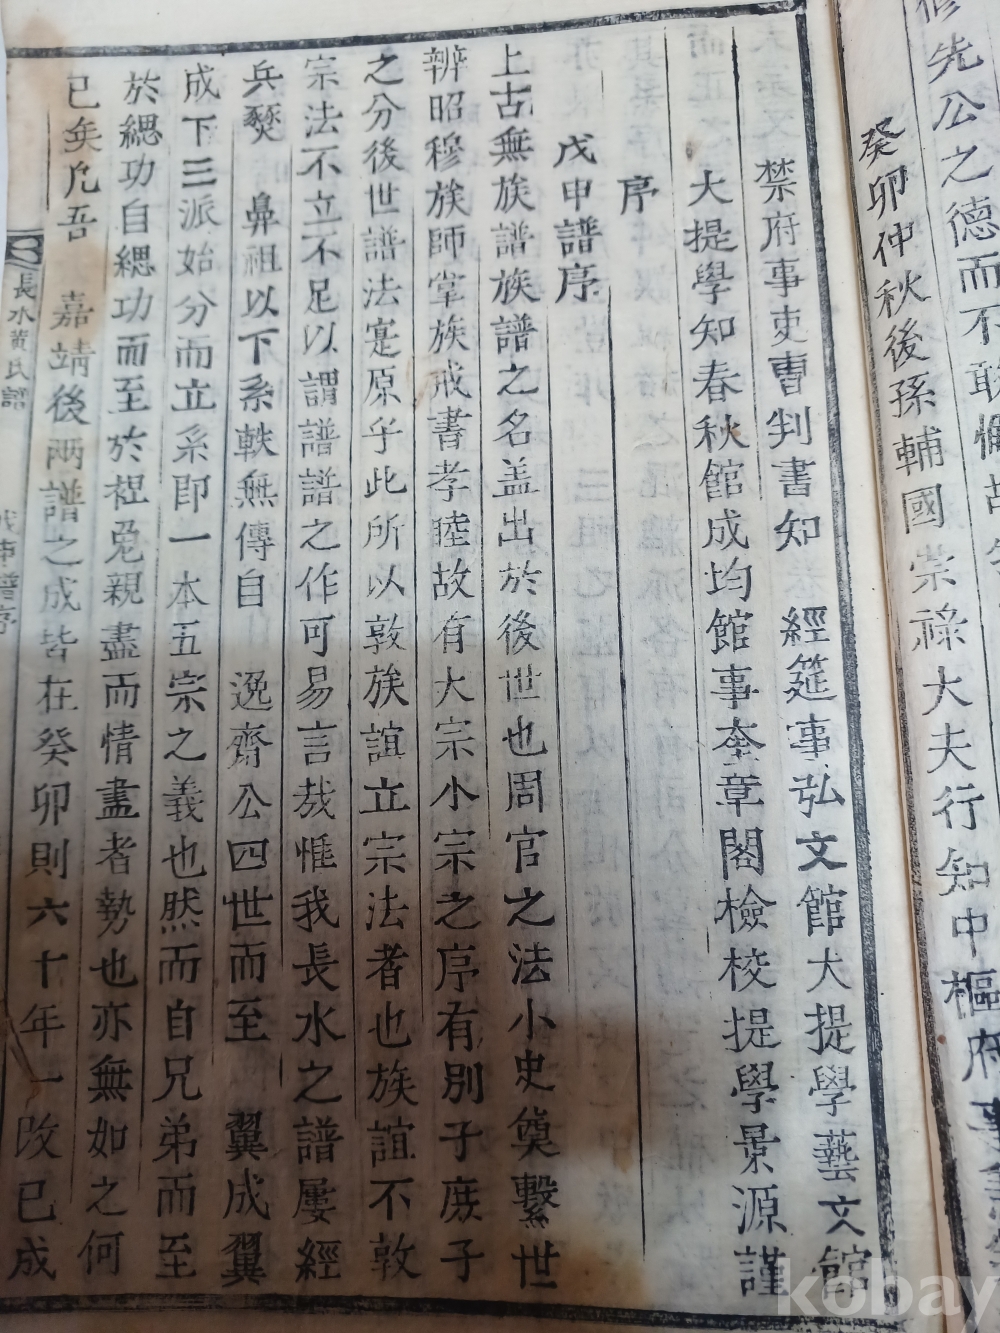 修先公之德而不敢
癸卯仲秋後孫輔國崇祿大夫行知中樞府事
禁府事吏曹判書知 經筵事弘文館大提學藝文館
大提學知春秋館成均館事奎章閣檢校提學景源謹
序
戊申譜序
上古無族譜族譜之名盖出於後世也周官之法小史奠繫世
辨昭穆族師掌族戒書孝睦故有大宗小宗之序有別子庻子
之分後世譜法寔原乎此所以敦族誼立宗法者也族誼不敦
宗法不立不足以謂譜譜之作可易言哉惟我長水之譜屢經
兵燹 鼻祖以下系軼無傳自 逸齋公四世而至 翼成翼
成下三派始分而立系即一本五宗之義也然而自兄弟而至
於緦功自緦功而至於袒免親盡而情盡者勢也亦無如之何
已矣凡吾 嘉靖後兩譜之成皆在癸卯則六十年一改已成
長水黃氏譜
戊申譜序
kobay